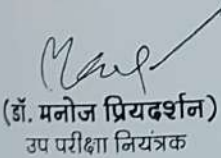 (डॉ. मनोज प्रियदर्शन)
उप परीक्षा नियंत्रक